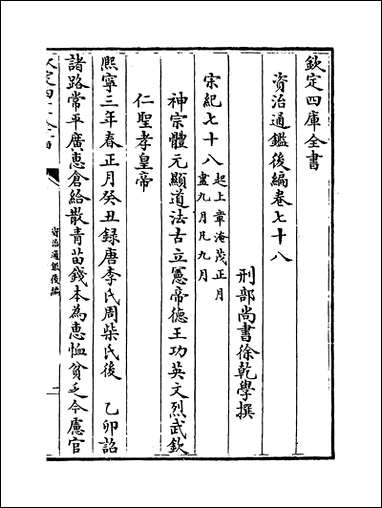 欽定四庫全書
資治通鑑後編卷七十八
刑部尚書徐乾學撰
宋紀七十八起上章淹茂正月
盡九月凡九月
神宗體元顯道法古立憲帝德王功英文烈武欽
仁聖孝皇帝
熙寧三年春正月癸丑録唐李氏周柴氏後 乙卯詔
諸路常平廣惠倉給散青苗錢本為惠恤貧乏今慮官
資治通鑑後編